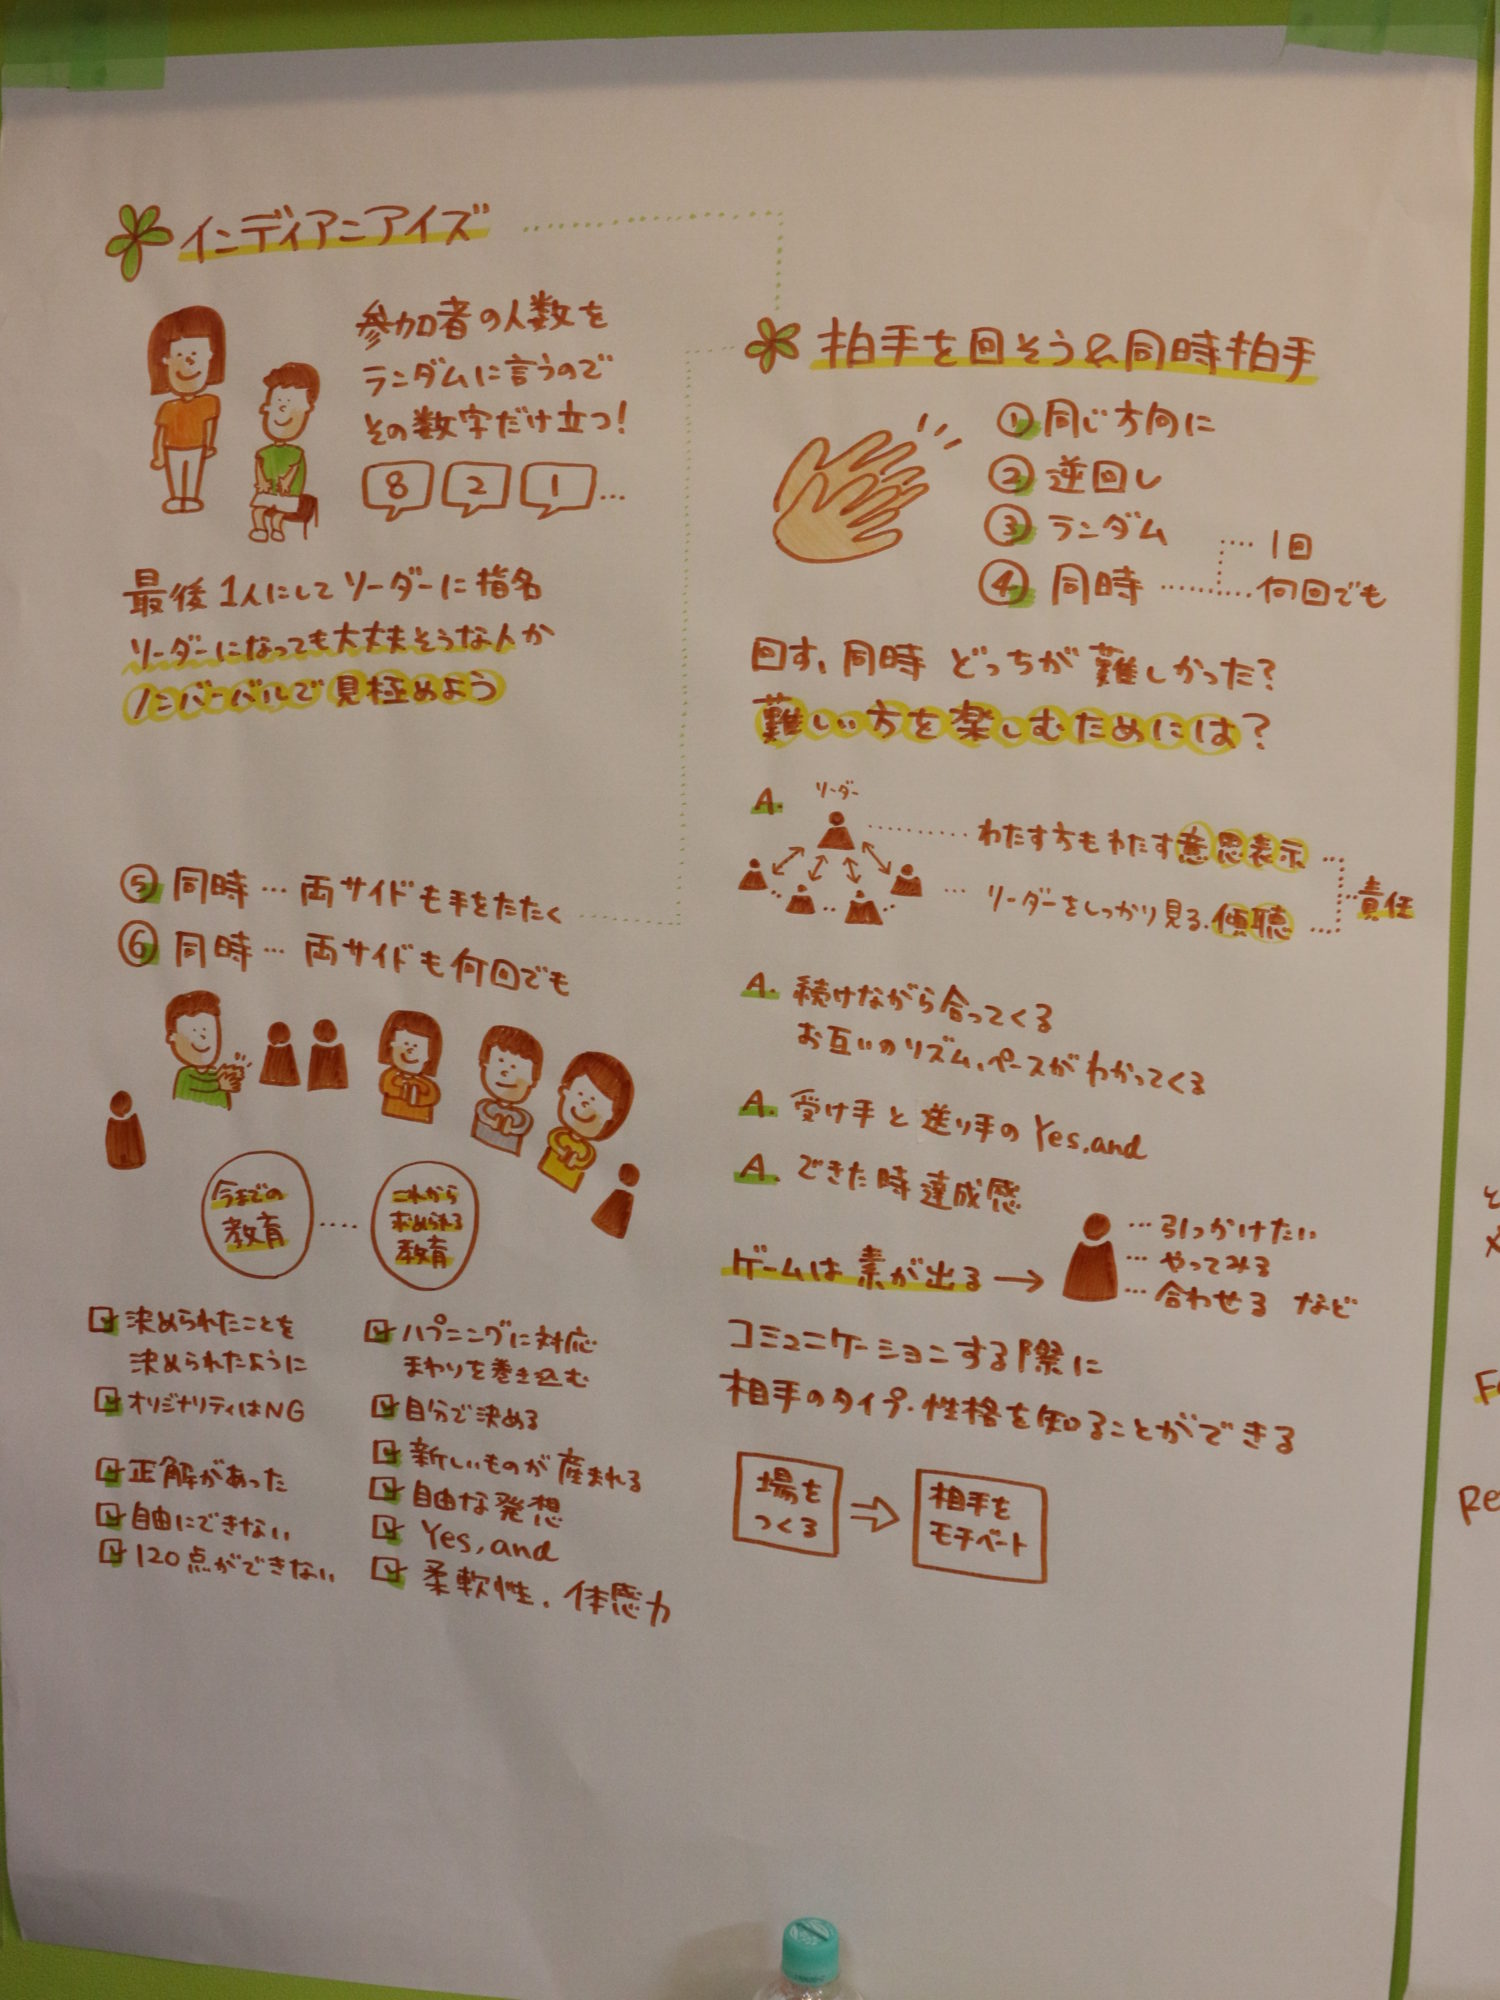 インディアンアイズ
参加者の人数を
ランダムに言うので
その数字だけ立つ!
8 2 1 …
最後1人にしてリーダーに指名
リーダーになっても大丈夫そうな人か
ノンバーバルで見極めよう
拍手を回そう&同時拍手
① 同じ方向に
② 逆回し
③ ランダム
④ 同時 …… 1回
何回でも
回す、同時 どっちが難しかった?
難しい方を楽しむためには?
A. リーダー
わたす方もわたす意思表示
… リーダーをしっかり見る.傾聴
責任
A. 続けながら合ってくる
お互いのリズム、ペースがわかってくる
A. 受け手と送り手のYes,and
A. できた時達成感
ゲームは素が出る →
… 引っかけたい
… やってみる
… 合わせる など
コミュニケーションする際に
相手のタイプ・性格を知ることができる
場を
つくる
⇨
相手を
モチベート
⑤ 同時 … 両サイドも手をたたく
⑥ 同時 … 両サイドも何回でも
今までの
教育
……
これから
求められる
教育
決められたことを
決められたように
オリジナリティはNG
正解があった
自由にできない
120点ができない
ハプニングに対応
まわりを巻き込む
自分で決める
新しいものが産まれる
自由な発想
Yes,and
柔軟性、体感力
Re